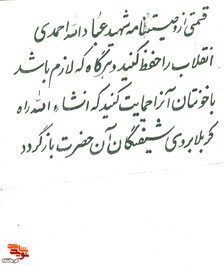 قسمتی از وصیتنامه شهید عباد الله احمدی
انقلاب را حفظ کنید و هرگاه که لازم باشد
با خونتان آنرا حمایت کنید که انشاء الله راه
کربلا بروی شیفتگان آن حضرت باز گردد